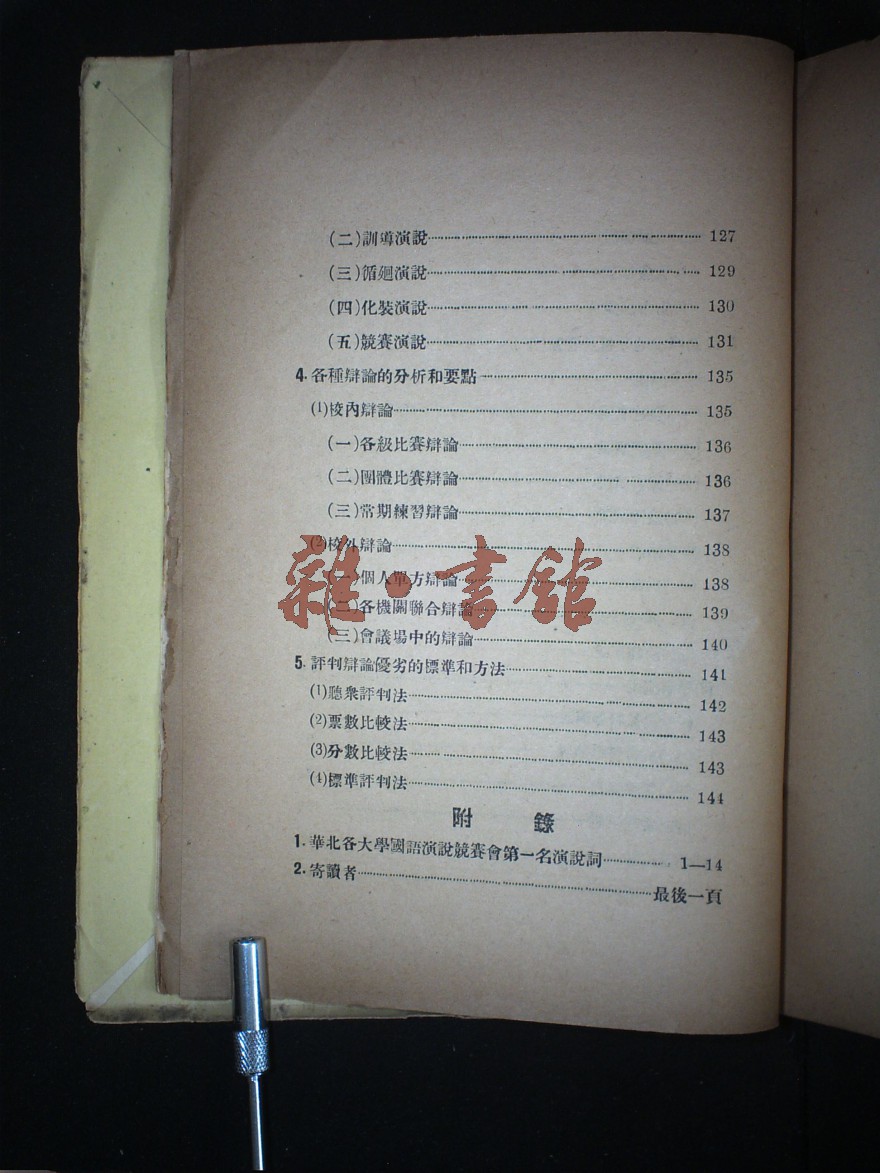 (二)訓導演說 127
(三)循廻演說 129
(四)化裝演說 130
(五)競賽演說 131
4. 各種辯論的分析和要點 135
(1)校內辯論 135
(一)各級比賽辯論 136
(二)團體比賽辯論 136
(三)常期練習辯論 137
(2)校外辯論 138
(一)個人單方辯論 138
(二)各機關聯合辯論 139
(三)會議場中的辯論 140
5. 評判辯論優劣的標準和方法 141
(1)聽衆評判法 142
(2)票數比較法 143
(3)分數比較法 143
(4)標準評判法 144
附 錄
1. 華北各大學國語演說競賽會第一名演說詞 1—14
2. 寄讀者 最後一頁
雜·書館